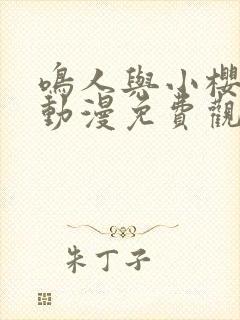 鳴人與小櫻
動漫免費觀
朱丁子